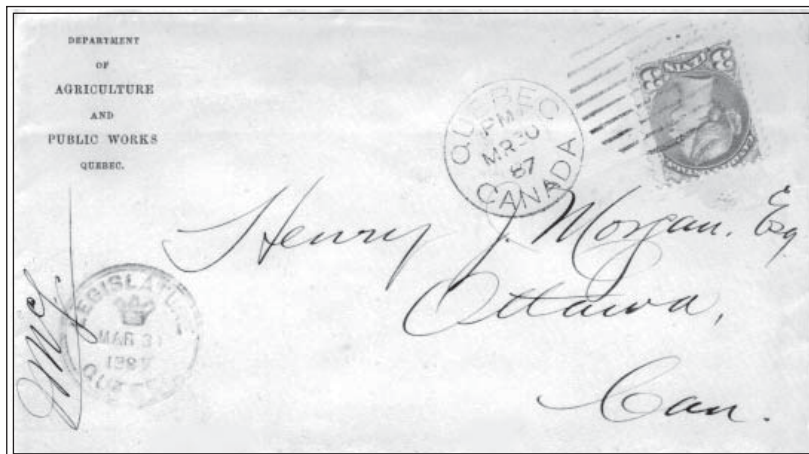 DEPARTMENT
OF
AGRICULTURE
AND
PUBLIC WORKS
QUEBEC.
QUEBEC
PM
MR 30
87
CANADA
Henry J. Morgan. Esq
Ottawa,
Can.
LEGISLATURE
MAR 31
1887
QUEBEC